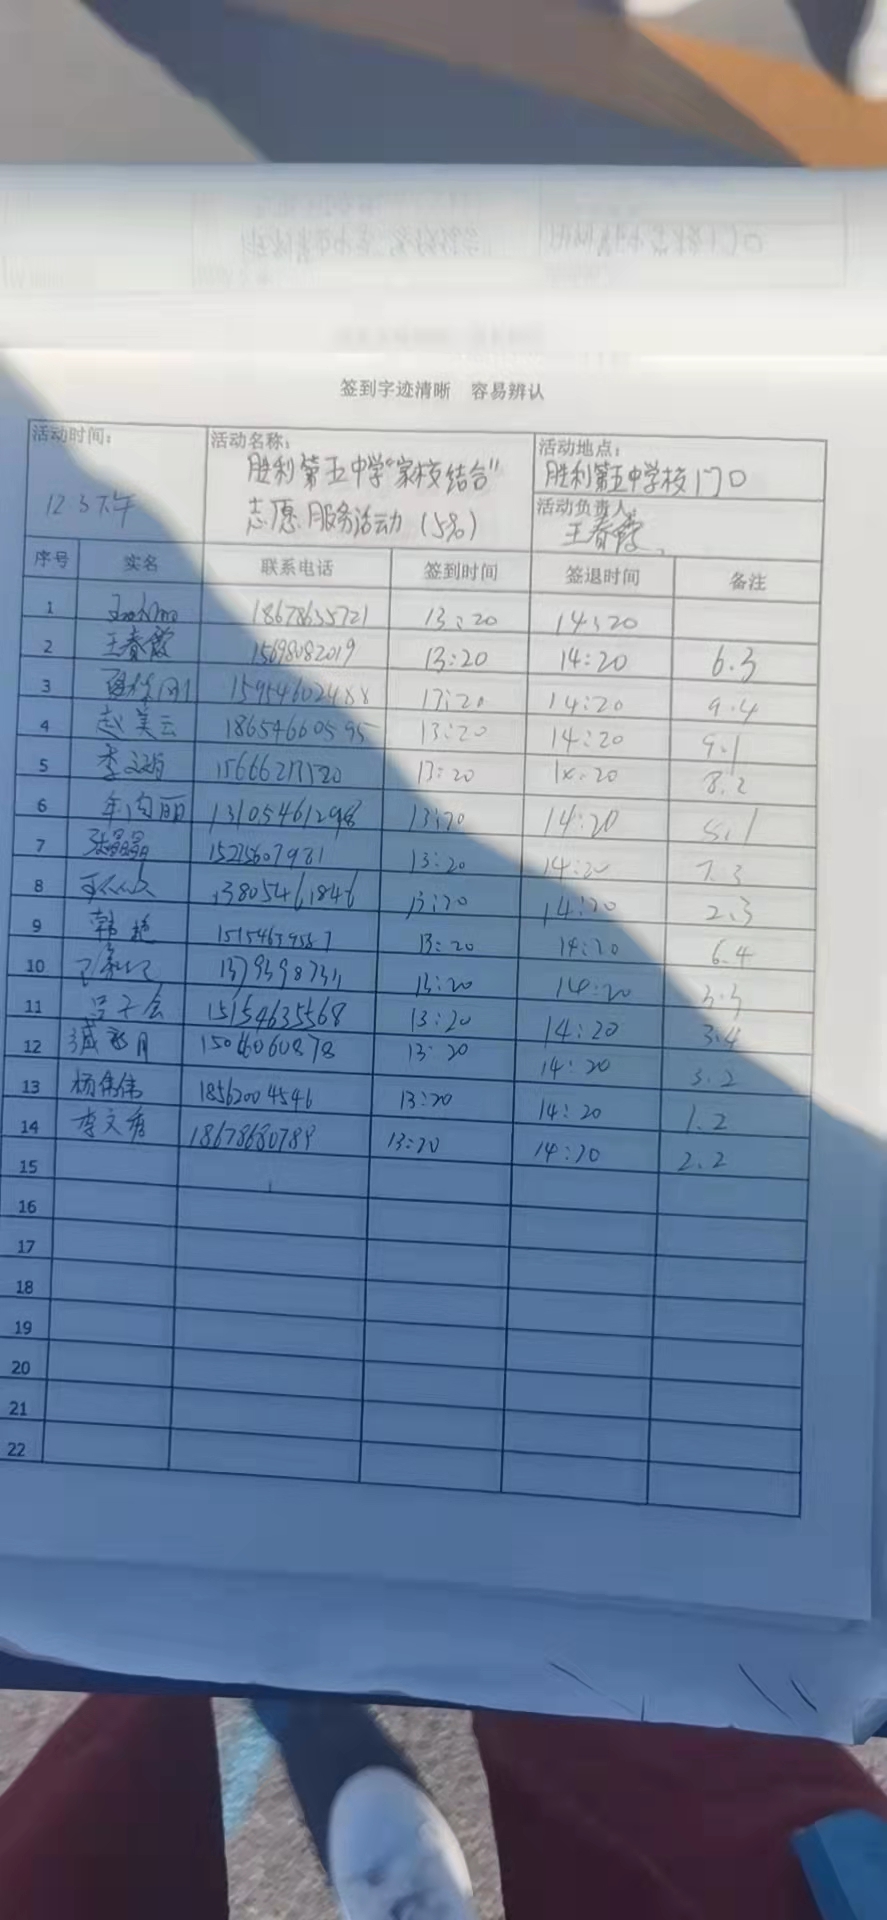 签到字迹清晰 容易辨认
活动时间: 12.3下午
活动名称: 胜利第五中学"家校结合"
志愿服务活动 (5%)
活动地点: 胜利第五中学校门口
活动负责人: 王春霞
序号 实名 联系电话 签到时间 签退时间 备注
1 18678635721 13:20 14:20
2 王春霞 15698082019 13:20 14:20 6.3
3 15954602488 13:20 14:20 9.4
4 赵美云 18654660595 13:20 14:20 9.1
5 13:20 8.2
6 13105461298 13:20 14:20 5.1
7 13:20 14:20 7.3
8 13805461846 13:20 14:20 2.3
9 韩艳 13:20 14:20 6.4
10 13:20 14:20 3.3
11 15154635568 13:20 14:20 3.4
12 15066060878 13:20 14:20 3.2
13 杨伟伟 18562004546 13:20 14:20 1.2
14 李文秀 18678680789 13:20 14:20 2.2
15
16
17
18
19
20
21
22